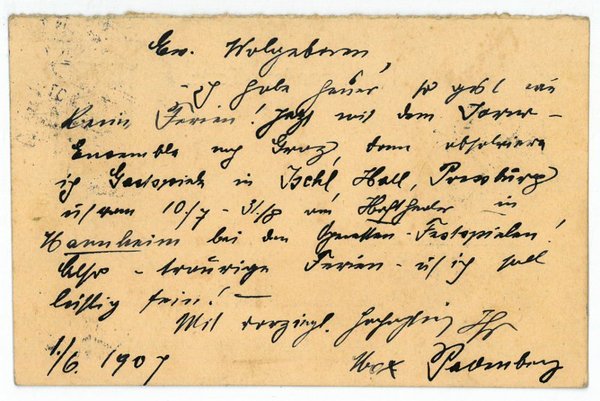 Ew. Wolgeboren,
Ich habe heuer so gut wie
keine Ferien! Jetzt mit dem
Ensemble nach Graz, dann absolviere
ich Gastspiele in Ischl, Hall, Pressburg
u. von 10/7 - 31/8 am Hoftheater in
Mannheim bei den Operetten-Festspielen!
Also - traurige Ferien - u. ich soll
lustig sein! —
Mit vorzügl. Hochachtung Ihr
1./6. 1907 Max Pallenberg